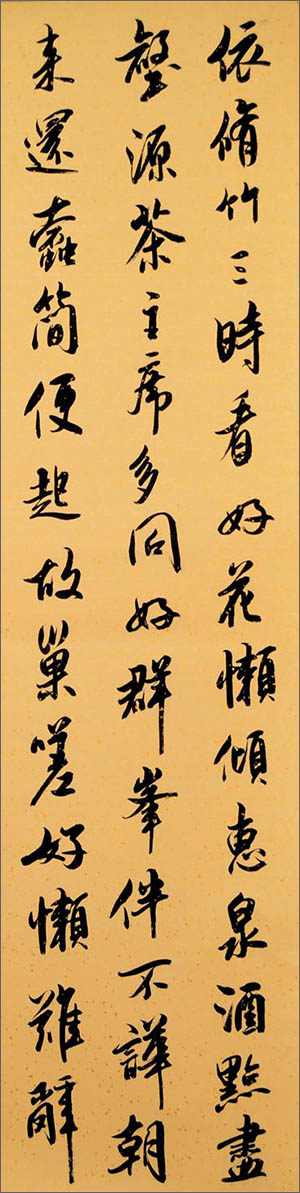 依脩竹三時看好花懶傾惠泉酒點盡
壑源茶主席多同好群峯伴不譁朝
来還蠹簡便起故巢嗟好懶難辭